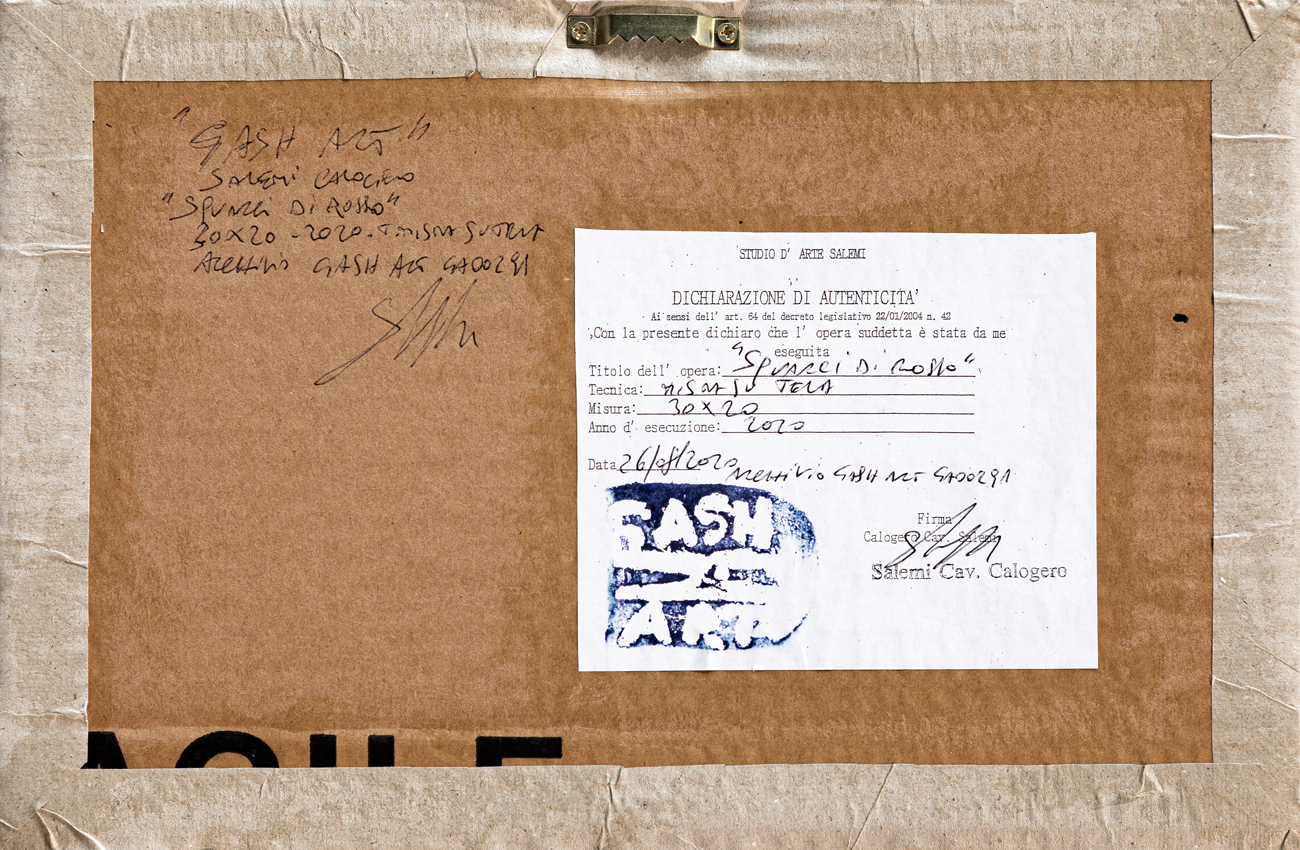 "GASH ART"
SALEMI CALOGERO
"SQUARCI Di ROSSO"
30x20 - 2020 - TMISTA SU TELA
ARCHIVIO GASH ART GA00291
STUDIO D' ARTE SALEMI
DICHIARAZIONE DI AUTENTICITA'
Ai sensi dell' art. 64 del decreto legislativo 22/01/2004 n. 42
Con la presente dichiaro che l' opera suddetta è stata da me
eseguita
Titolo dell' opera: "SQUARCI Di ROSSO"
Tecnica: MISTA SU TELA
Misura: 30x20
Anno d' esecuzione: 2020
Data 26/08/2020 ARCHIVIO GASH ART GA00291
GASH
ART
Firma
Calogero Cav. Salemi
Salemi Cav. Calogero
AGILE